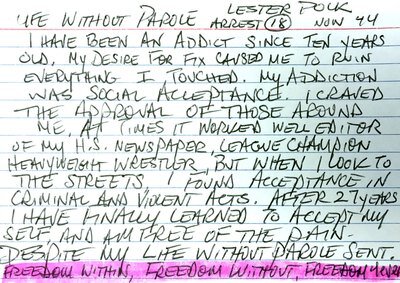 LIFE WITHOUT PAROLE LESTER POLK
ARREST 18 NOW 44
I HAVE BEEN AN ADDICT SINCE TEN YEARS
OLD, MY DESIRE FOR FIX CAUSED ME TO RUIN
EVERYTHING I TOUCHED. MY ADDICTION
WAS SOCIAL ACCEPTANCE. I CRAVED
THE APPROVAL OF THOSE AROUND
ME, AT TIMES IT WORKED WELL EDITOR
OF MY H.S. NEWSPAPER, LEAGUE CHAMPION
HEAVYWEIGHT WRESTLER, BUT WHEN I LOOK TO
THE STREETS, I FOUND ACCEPTANCE IN
CRIMINAL AND VIOLENT ACTS. AFTER 27 YEARS
I HAVE FINALLY LEARNED TO ACCEPT MY
SELF AND AM FREE OF THE PAIN.
DESPITE MY LIFE WITHOUT PAROLE SENT.
FREEDOM WITHIN, FREEDOM WITHOUT, FREEDOM